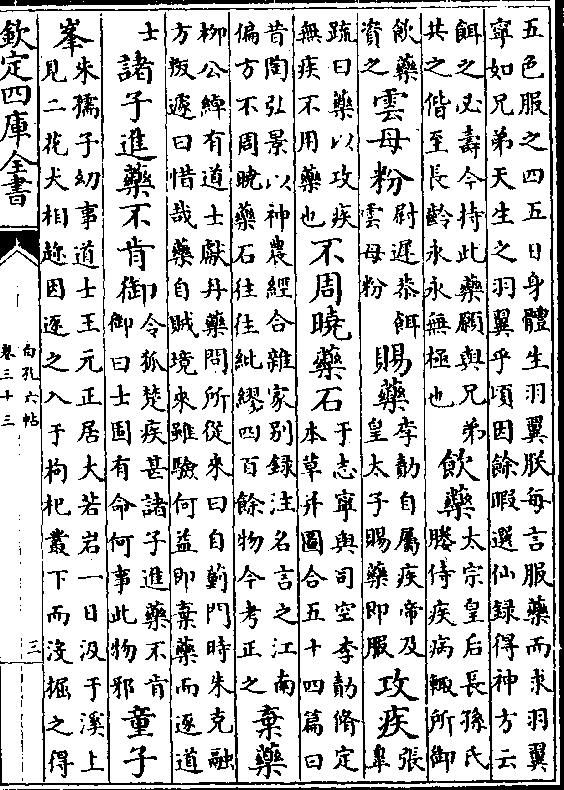 五色服之四五日身體生羽翼朕每言服藥而求羽翼
寧如兄弟天生之羽翼乎頃因餘暇選仙録得神方云
餌之必壽今持此藥願與兄弟
共之偕至長齡永永無極也
飲藥
太宗皇后長孫氏
媵侍疾病輙所御
飲藥
資之
雲母粉
尉遲恭餌
雲母粉
賜藥
李勣自屬疾帝及
皇太子賜藥即服
攻疾
張
臯
疏曰藥以攻疾
無疾不用藥也
不周曉藥石
于志寧與司空李勣脩定
本草并圖合五十四篇曰
昔陶弘景以神農經合雜家别録注名言之江南
偏方不周曉藥石往往紕繆四百餘物今考正之
棄藥
柳公綽有道士獻丹藥問所從來曰自薊門時朱克融
方叛遽曰惜哉藥自賊境來雖驗何益即棄藥而逐道
士
諸子進藥不肯御
令狐楚疾甚諸子進藥不肯
御曰士固有命何事此物邪
童子
峯
朱孺子幼事道士王元正居大若岩一日汲于溪上
見二花犬相趂因逐之入于枸杞叢下而沒掘之得
欽定四庫全書
白孔六帖
卷三十三
三